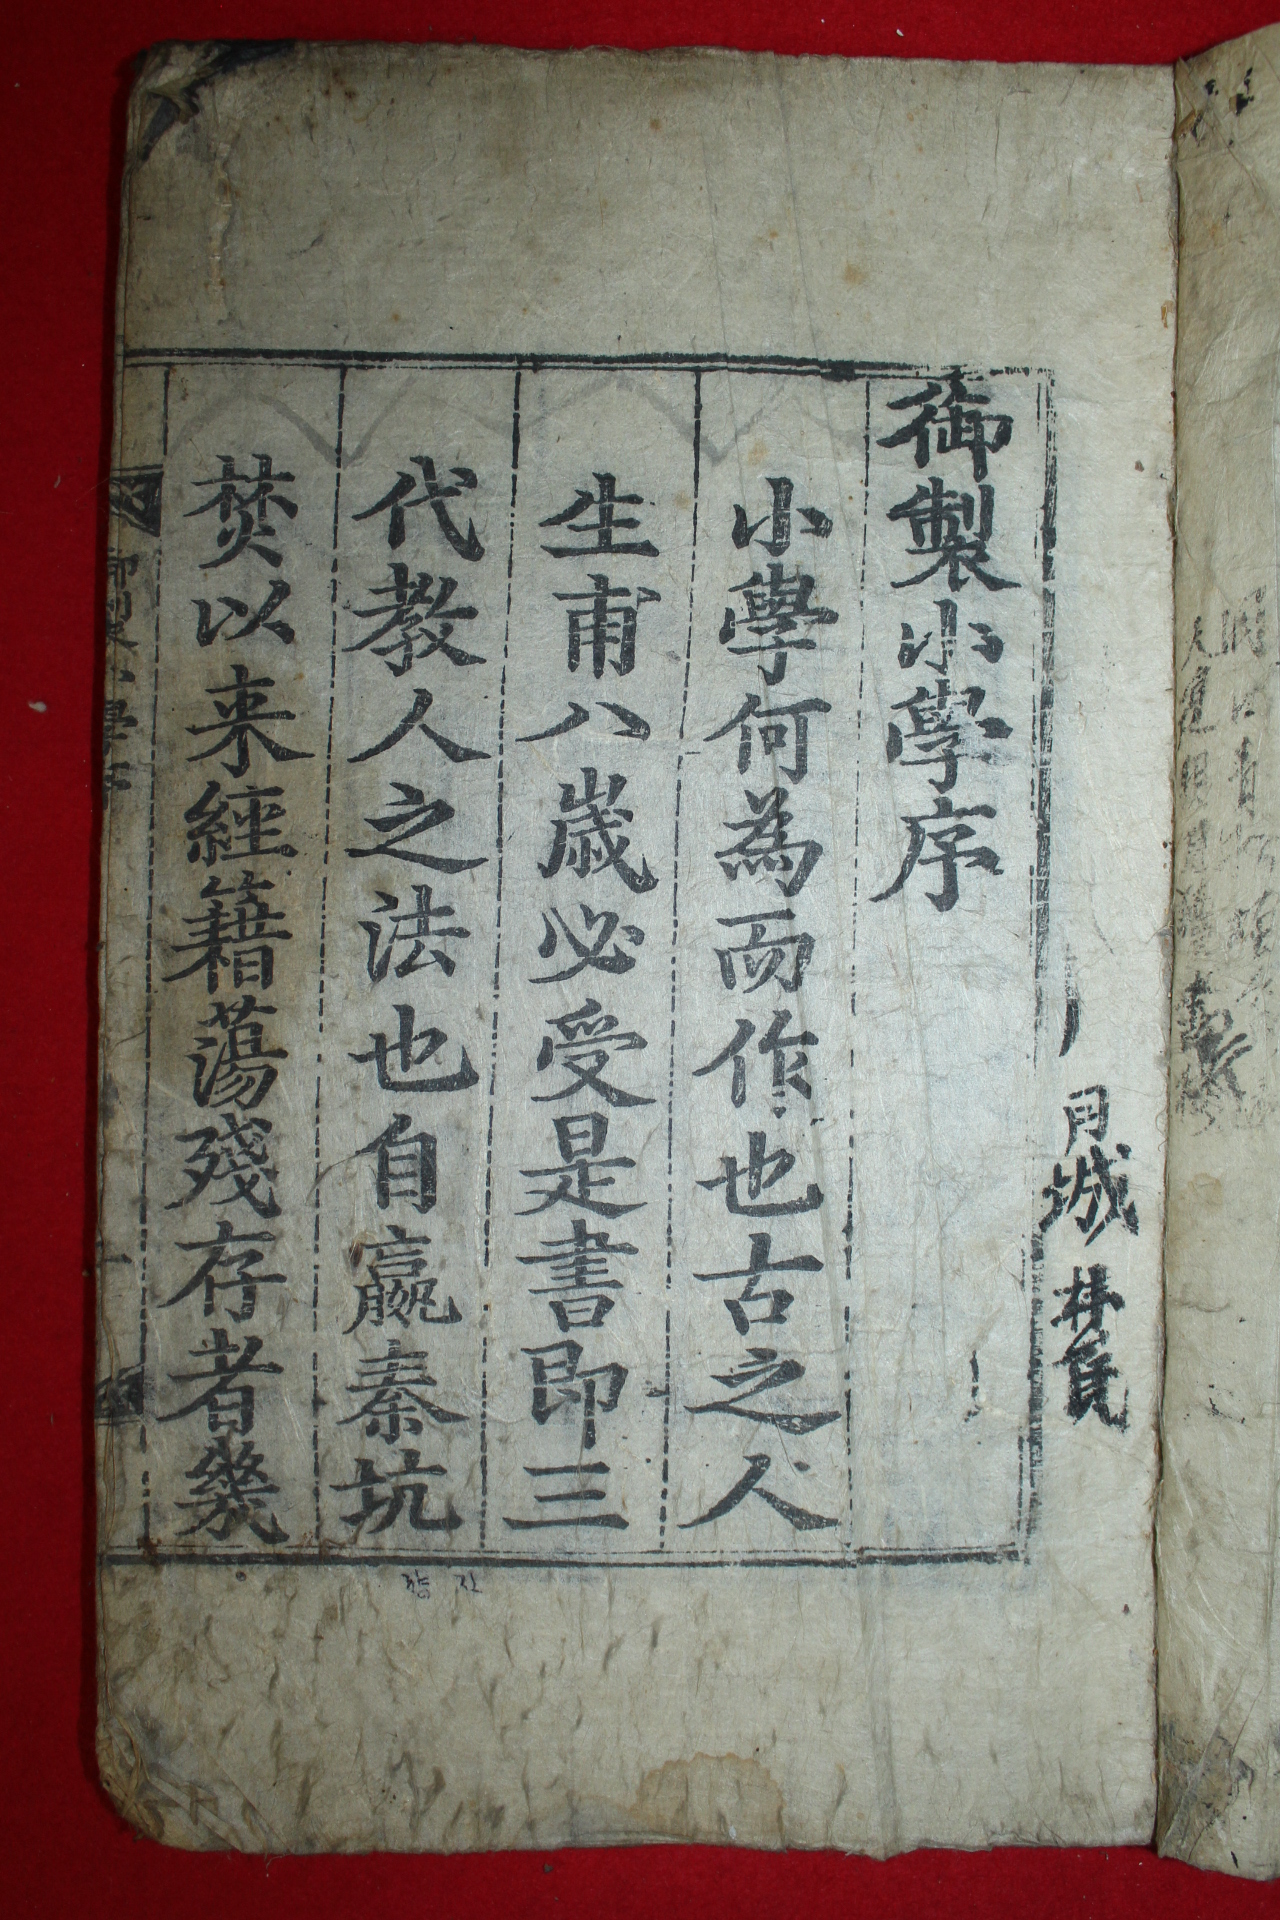 御製小學序
小學何為而作也古之人
生甫八歲必受是書即三
代教人之法也自嬴秦坑
焚以来經籍蕩殘存者幾
御製小學序
月城